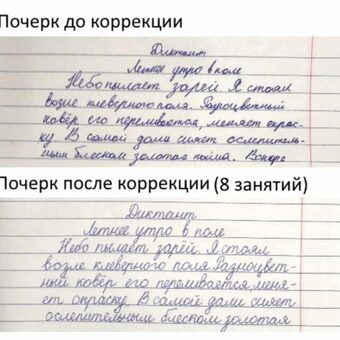 Почерк до коррекции
Диктант
Летнее утро в поле
Небо пылает зарей. Я стоял
возле клеверного поля. Разноцветный
ковёр его переливается, меняет окрас-
ку В самой дали сияет ослепитель-
ным блеском золотая пойма. Вскоре
Почерк после коррекции (8 занятий)
Диктант
Летнее утро в поле
Небо пылает зарёй. Я стоял
возле клеверного поля Разноцвет-
ный ковёр его переливается, меня-
ет окраску. В самой дали сияет
ослепительным блеском золотая